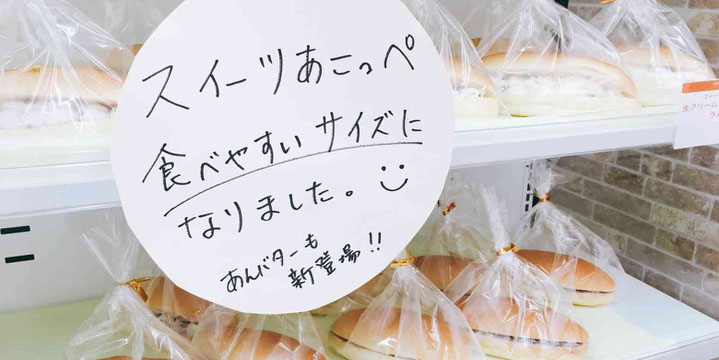 スイーツあこっぺ
食べやすいサイズに
なりました。
あんバターも
新登場!!
生クリーム